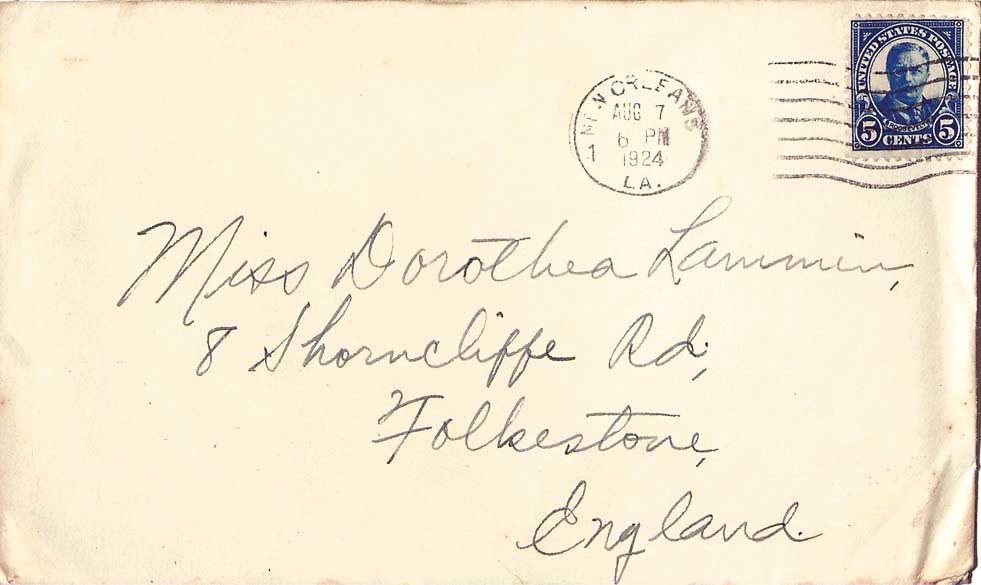 UNITED STATES POSTAGE
ROOSEVELT
5 CENTS 5
NEW ORLEANS
AUG 7
6 PM
1
1924
LA.
Miss Dorothea Lammin,
8 Shorncliffe Rd.,
Folkestone,
England.